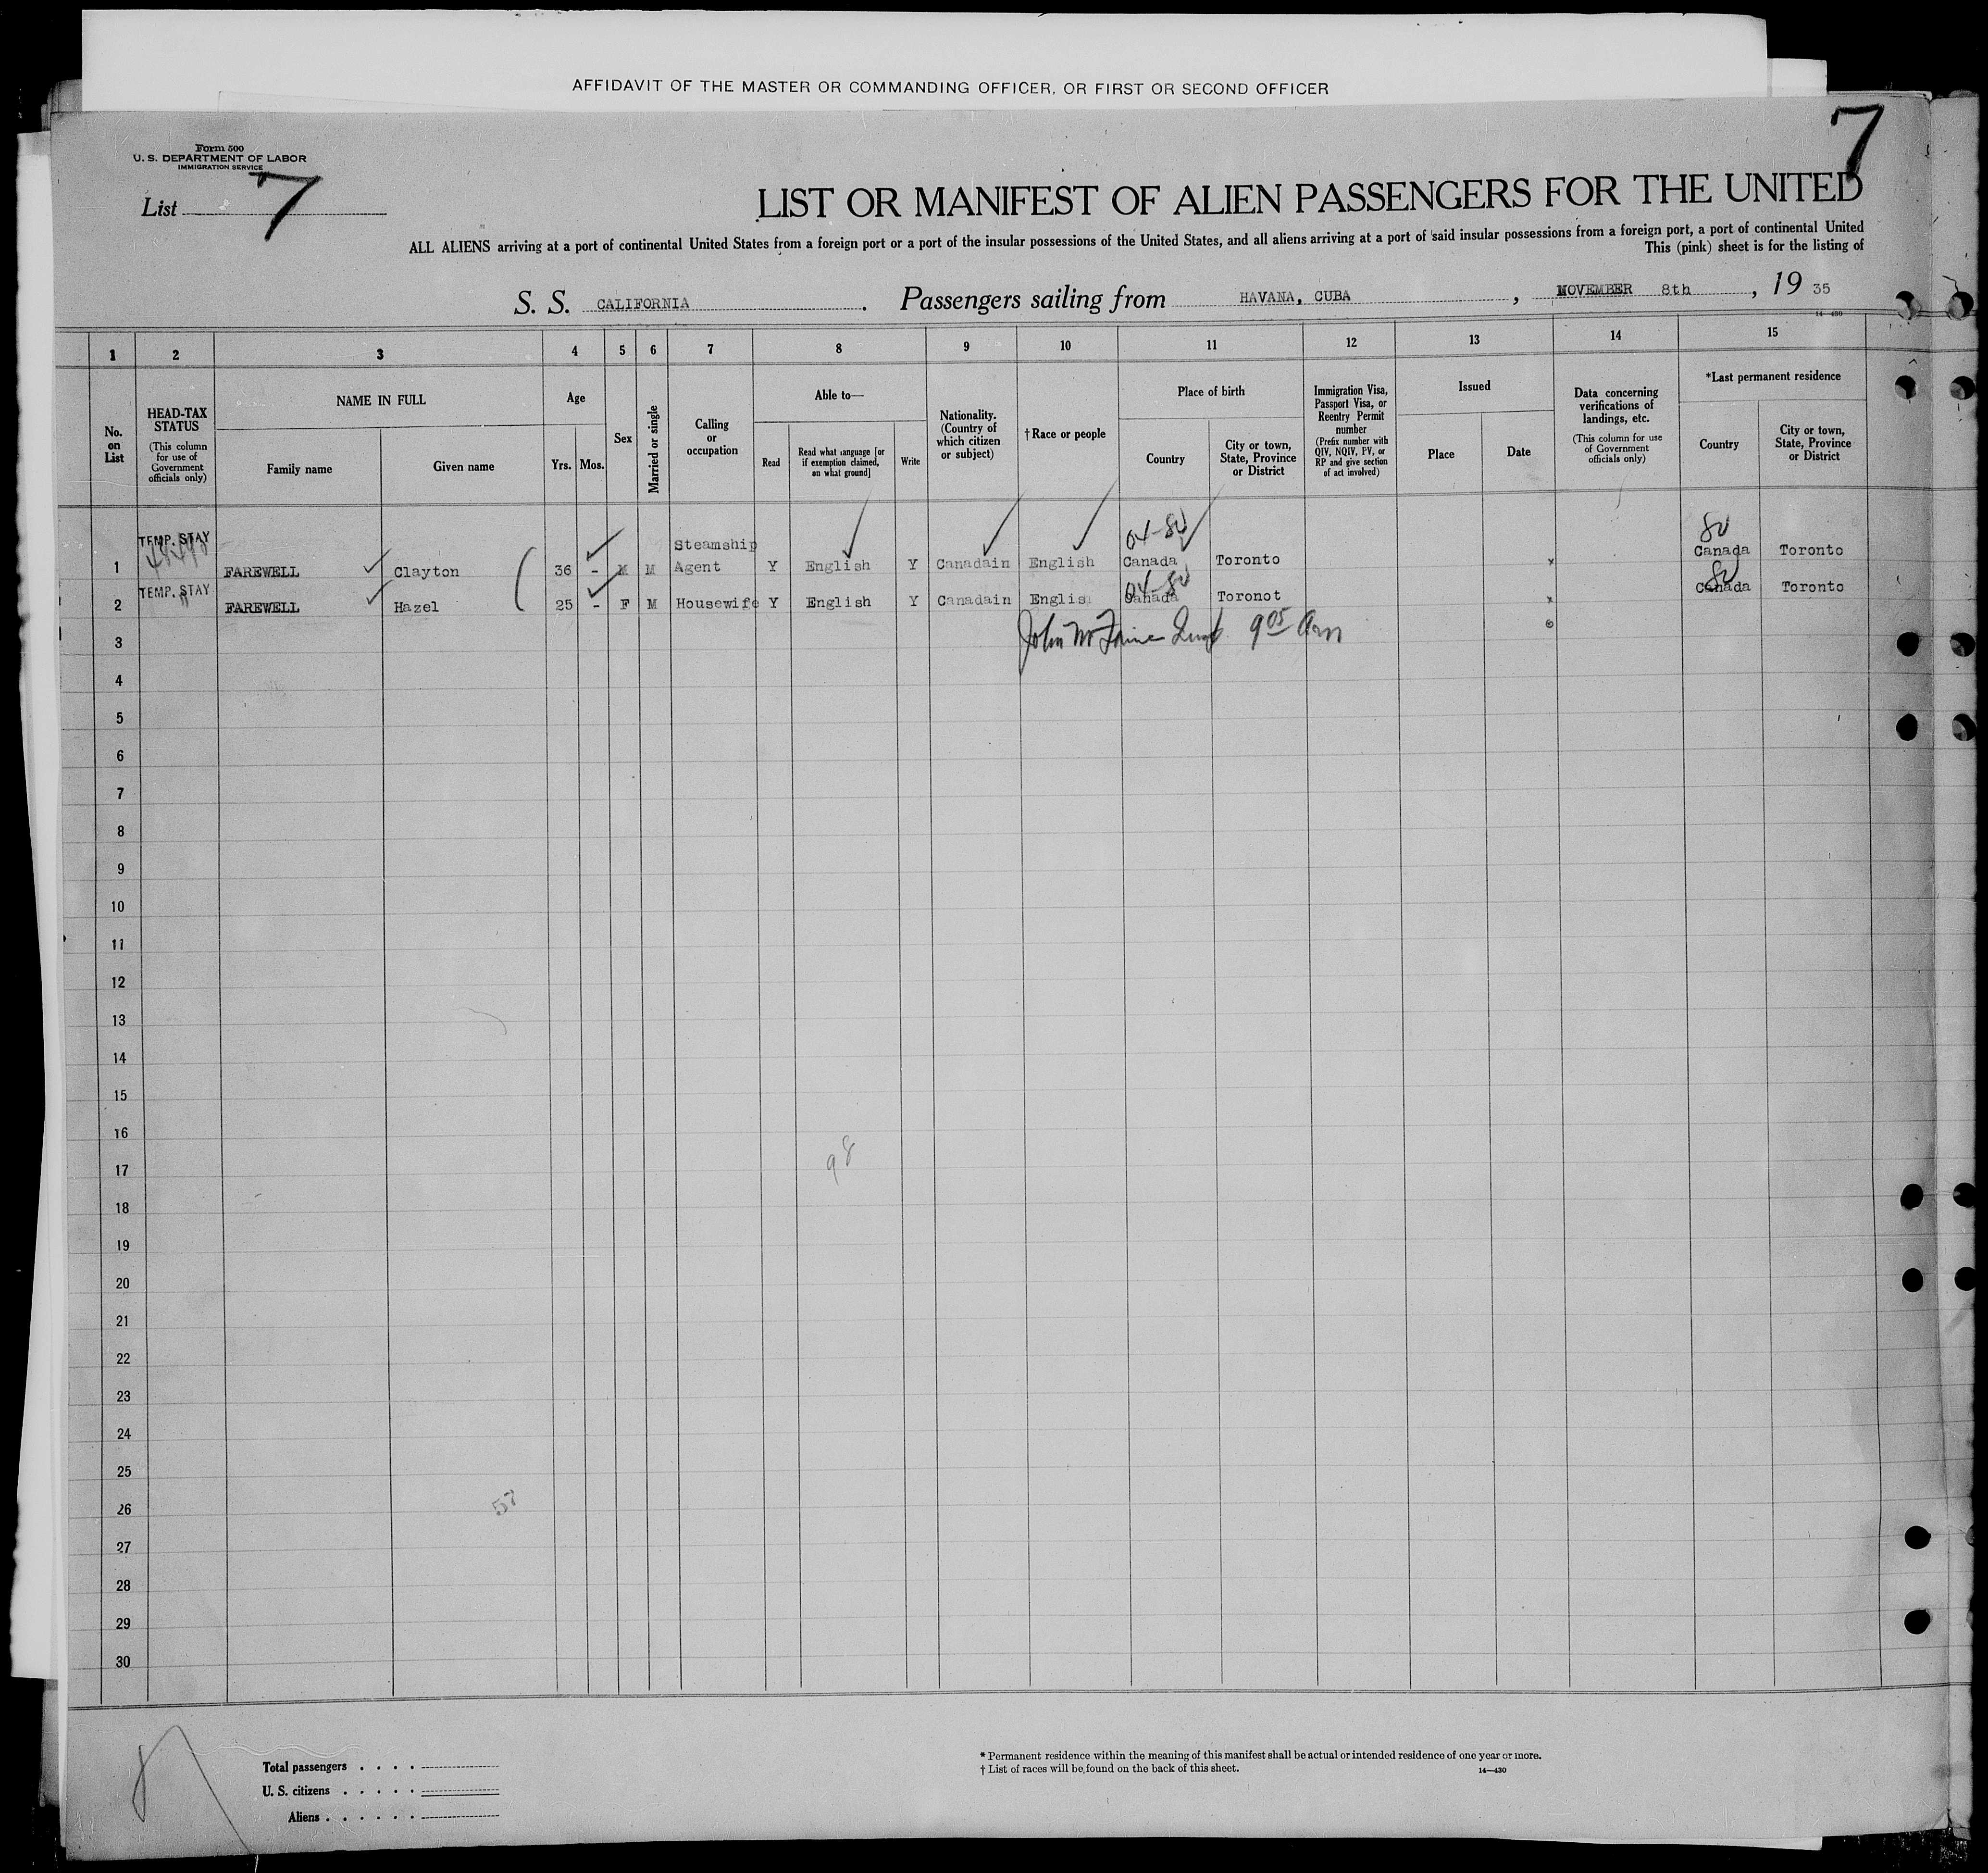 AFFIDAVIT OF THE MASTER OR COMMANDING OFFICER, OR FIRST OR SECOND OFFICER
7
Form 500
U. S. DEPARTMENT OF LABOR
IMMIGRATION SERVICE
List 7
LIST OR MANIFEST OF ALIEN PASSENGERS FOR THE UNITED
ALL ALIENS arriving at a port of continental United States from a foreign port or a port of the insular possessions of the United States, and all aliens arriving at a port of said insular possessions from a foreign port, a port of continental United
This (pink) sheet is for the listing of
S. S. CALIFORNIA. Passengers sailing from HAVANA, CUBA, NOVEMBER 8th, 19 35
14—430
1 2 3 4 5 6 7 8 9 10 11 12 13 14 15
No. on List
HEAD-TAX STATUS
(This column for use of Government officials only)
NAME IN FULL
Family name
Given name
Age
Yrs. Mos.
Sex
Married or single
Calling or occupation
Able to—
Read
Read what language [or if exemption claimed, on what ground]
Write
Nationality. (Country of which citizen or subject)
†Race or people
Place of birth
Country
City or town, State, Province or District
Immigration Visa, Passport Visa, or Reentry Permit number
(Prefix number with QIV, NQIV, PV, or RP and give section of act involved)
Issued
Place
Date
Data concerning verifications of landings, etc.
(This column for use of Government officials only)
*Last permanent residence
Country
City or town, State, Province or District
TEMP. STAY
04-80
80
1 FAREWELL Clayton 36 - M M Steamship Agent Y English Y Canadain English Canada Toronto x Canada Toronto
TEMP. STAY
04-80
80
2 FAREWELL Hazel 25 - F M Housewife Y English Y Canadain Englis Canada Toronot x Canada Toronto
3 John 9 05 am
4
5
6
7
8
9
10
11
12
13
14
15
16
98
17
18
19
20
21
22
23
24
25
26
57
27
28
29
30
Total passengers . . . .
U. S. citizens . . . . .
Aliens . . . . . .
* Permanent residence within the meaning of this manifest shall be actual or intended residence of one year or more.
† List of races will be found on the back of this sheet.
14—430